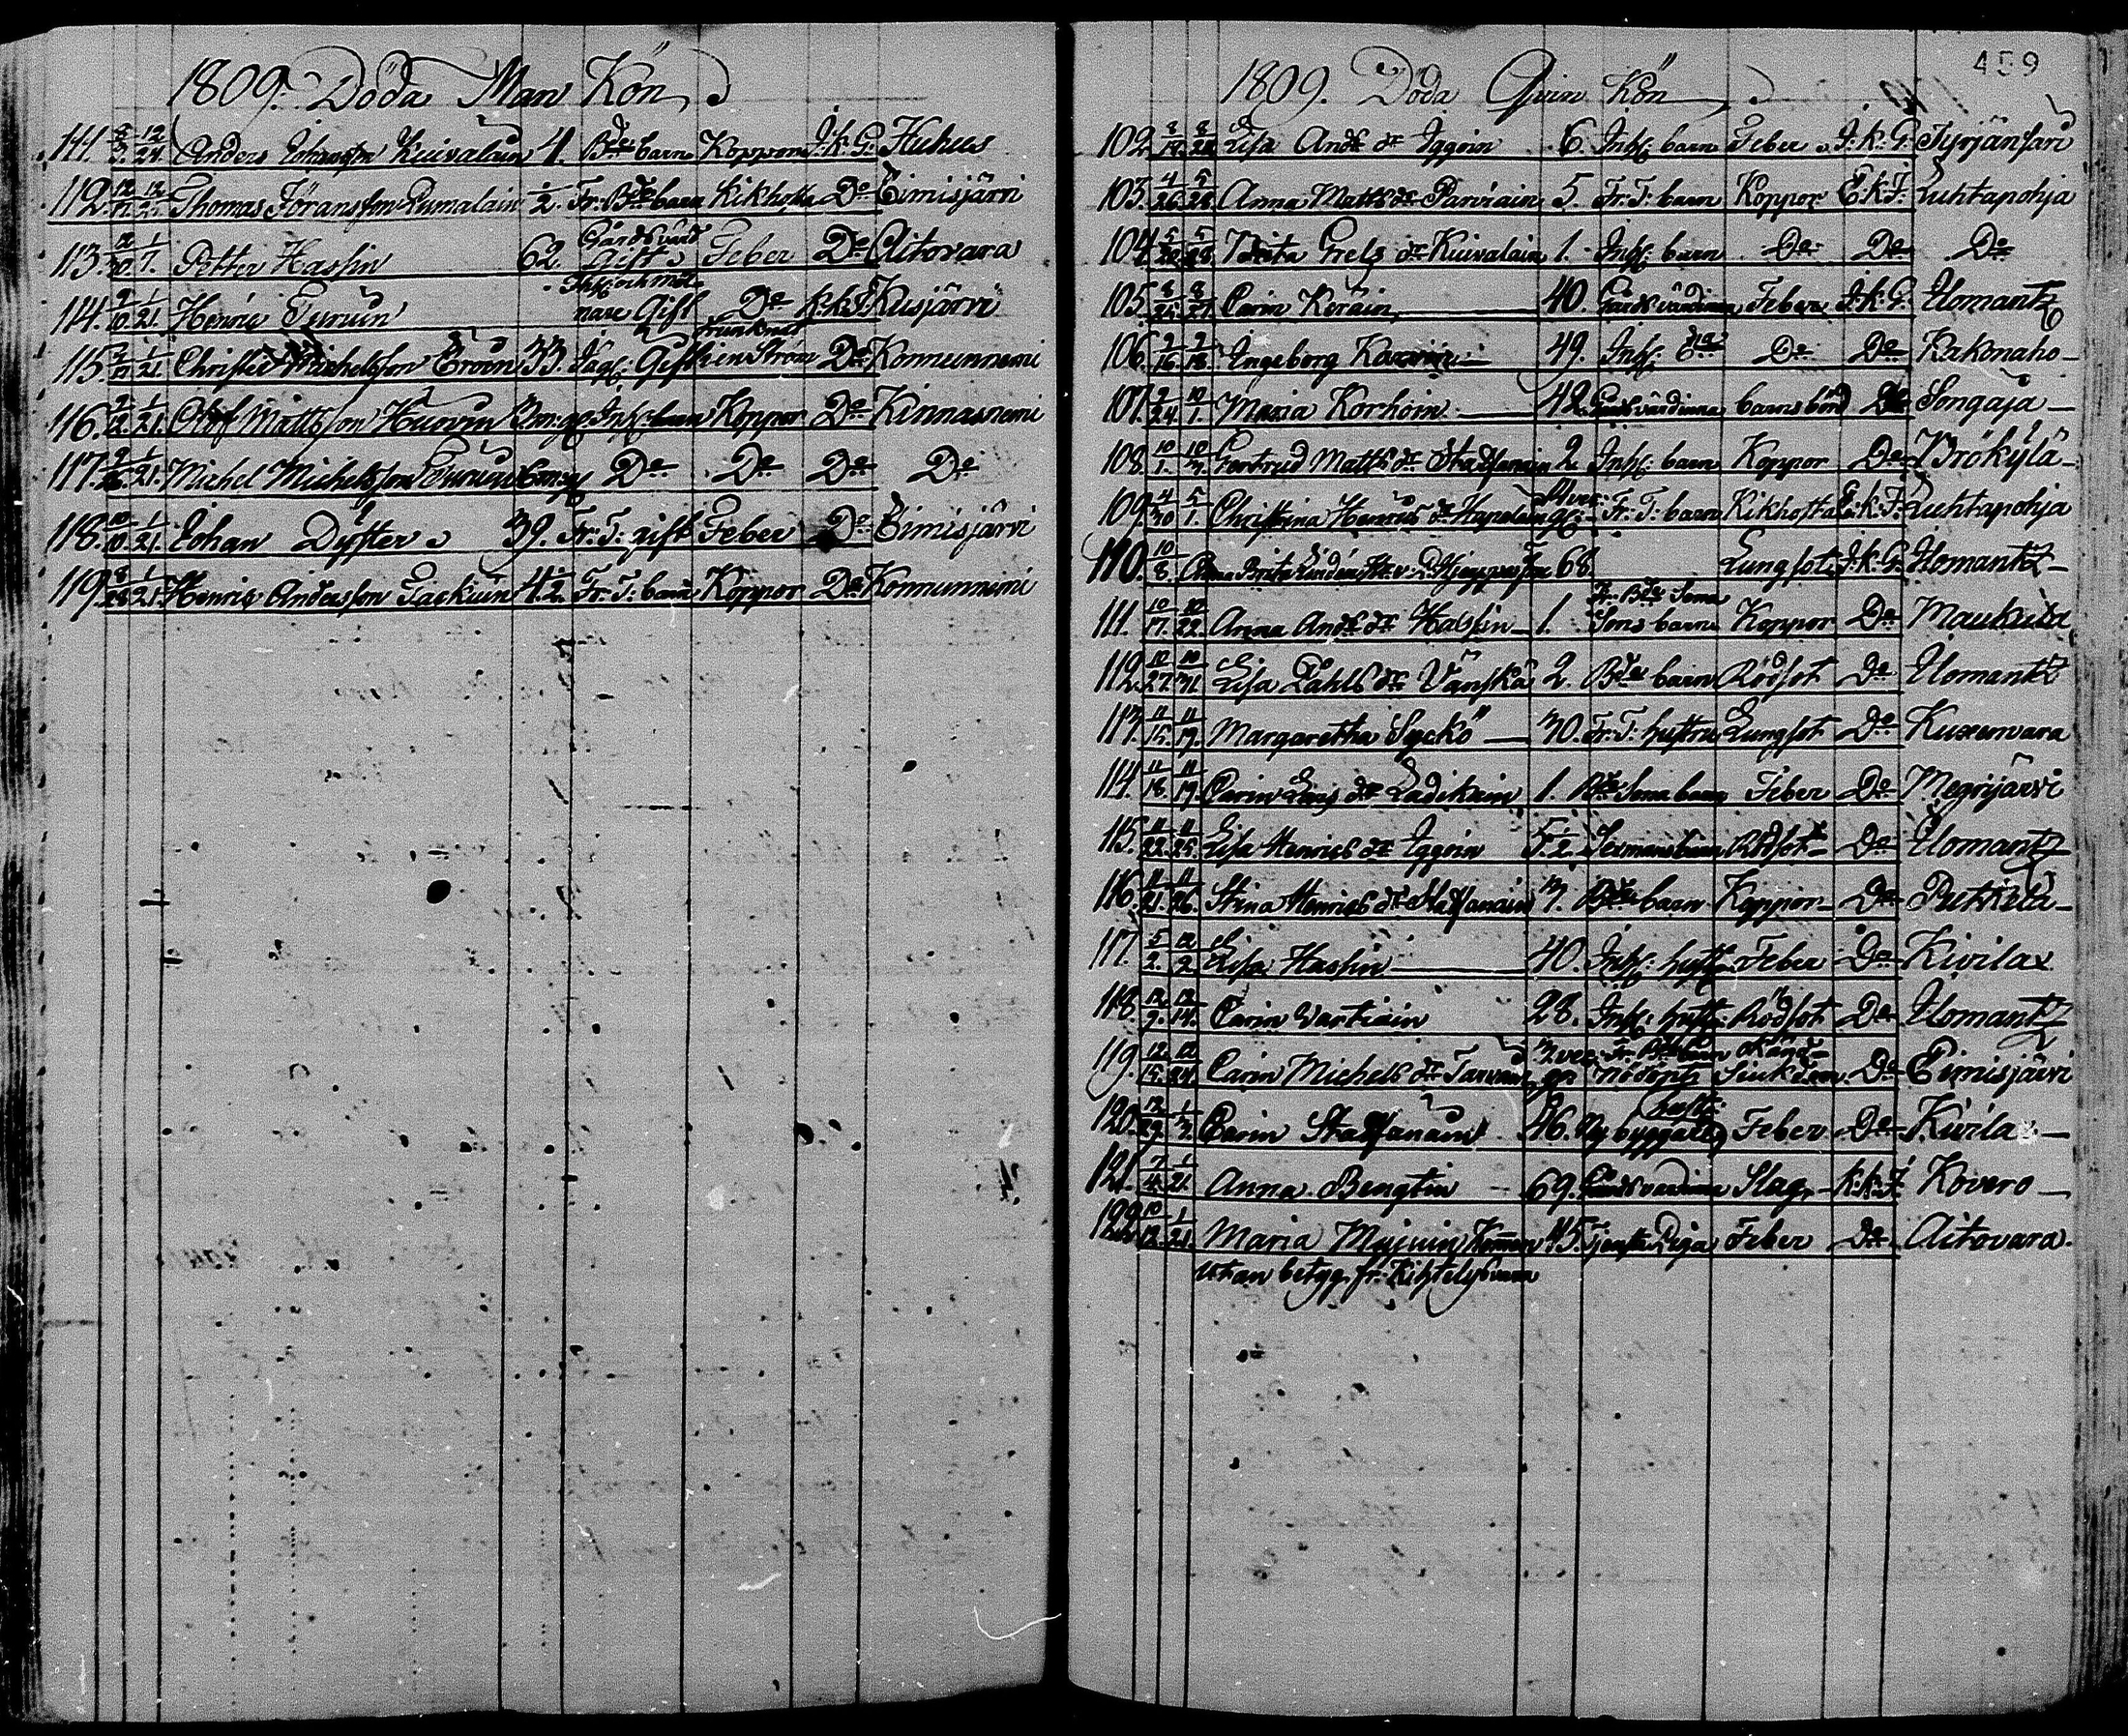 1809. Döda Man Kön
111. 12/24 Anders Kuivalain 4. Bde barn Koppor I.k.G. Huhus
112. Thomas Göransson 1/2 Fr. Bde barn Kikhosta Do Eimisjärvi
113. 1/7. Petter Hassin 62. Gårdsvärd Gift Feber Do Aitovara
114. 1/21. Henric Turuin Inh: och måt-nare Gift Do k.k.F. Kuisjärvi
115. 1/21. Christer Michelsson Eroin 33. Gift drunknat i en Ström Do Konnunniemi
116. 1/21. Olof Mattsson Huovin Inh: barn Koppor Do Kinnasniemi
117. 1/21. Michel Michelsson Turuin Do Do Do Do
118. 10/10 1/21. Johan Dyster 39. Fr: T: gift Feber Do Eimisjärvi
119. 8/28 1/21. Henric Andersson Gaskuin 4 1/2. Fr: T: barn Koppor Do Konnunniemi
459
1809. Döda Qvin Kön
102. Lisa And:s dr Iggoin 6. Inh: barn Feber I.k.G. Tyrjänsari
103. 4/26 5/28 Anna Matts dr Parviain 5. Fr: T: barn Koppor E.k.F. Luhtapohja
104. Brita Grels dr Kuivalain 1. Inh: barn Do Do Do
105. 8/27 Carin Koräin 40. Gårdsvärdinna Feber I.k.G. Ilomantz
106. 9/16 9/18. Ingeborg 49. Inh: Do Do Kakonaho
107. 9/24 10/1. Maria Korhoin 42. Gårdsvärdinna barnsbörd Do Songaja
108. 10/1. Gertrud Matts dr Staffanain 2. Inh: barn Koppor Do Brökylä
109. 4/30 5/1. Christina Henrics dr 2 vec: gl: Fr: T: barn Kikhosta E.k.F. Luhtapohja
110. 10/8 Anna Brita 68 Lungsot I.k.G. Ilomantz
111. 10/17. 10/22. Anna And:s dr Hassin 1. Fr: Bde Sona Sons barn Koppor Do Maukula
112. 10/27. 10/31. Lisa Påhls dr Vänskä 2. Bde barn Rödsot Do Ilomantz
113. 11/15. 11/19. Margaretha Sycko 30. Fr: T: hustru Lungsot Do Kuxenvara
114. 11/18 11/19. Carin Lars dr Ladikain 1. Bde Sona barn Feber Do Megrijärvi
115. 11/22. 11/25. Lisa Henrics dr Iggoin 5 1/2. barn Rödsot Do Ilomantz
116. 11/21. 11/26. Stina Henrics dr Staffanain 7. Bde barn Koppor Do Putkela
117. 5/2. 12/2 Lisa Hassin 40. Inh: hustr: Feber Do Kivilax
118. 12/9. 12/14. Carin Vartiain 28. Inh: hustr: Rödsot Do Ilomantz
119. 12/15. 12/24. Carin Michels dr 3 vec: gl Fr: Bde barn Okänd Siukdom Do Eimisjärvi
120. 12/29. Carin Staffanain 46. Nybyggares hustr: Feber Do Kivilax
121. 7/4. 1/21. Anna Bengtin 69. Gårdsvärdinna Slag k.k.F. Kovero
122. 10/12. 1/21. Maria Mujuin Kommen 45. Tjenste Piga Feber Do Aitovara.
utan betyg fr: Kihtelysvaara